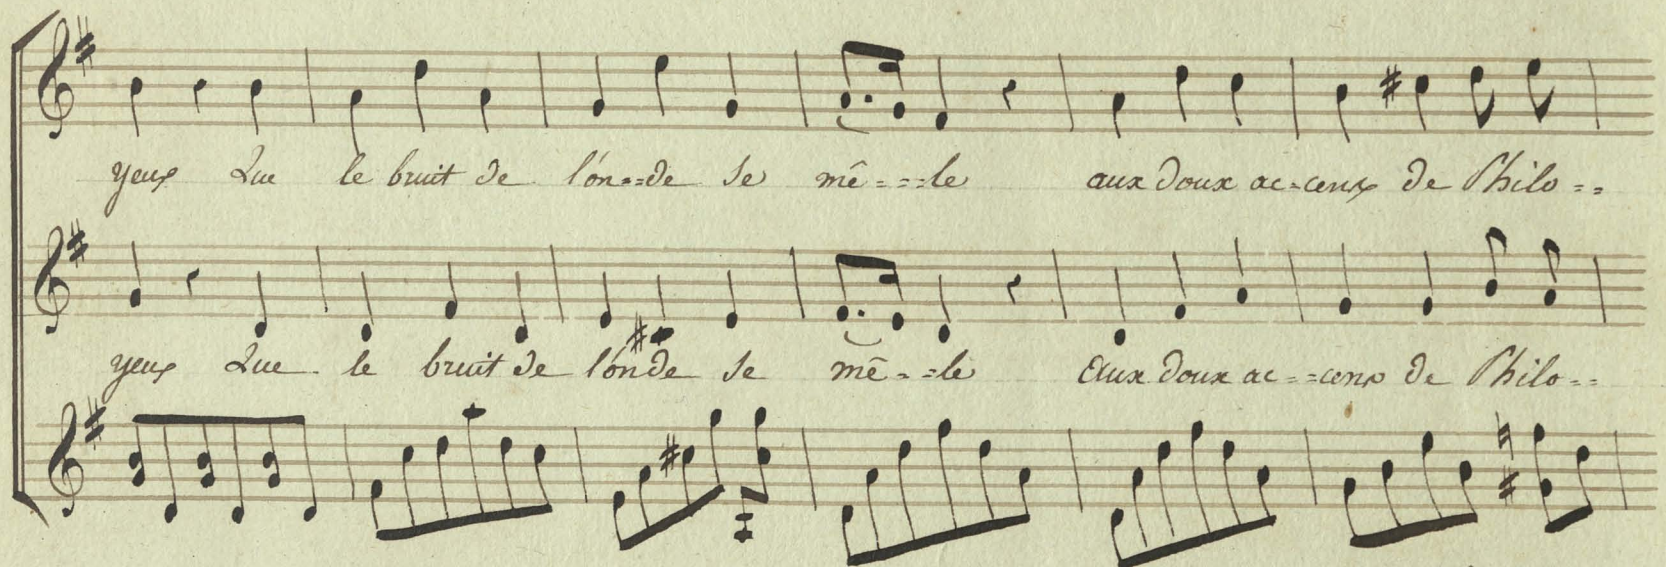 yeux Que le bruit de l'on==de se mê===le aux doux ac=cens de Philo==
yeux Que le bruit de l'onde se mê==le Aux doux ac==cens de Philo==